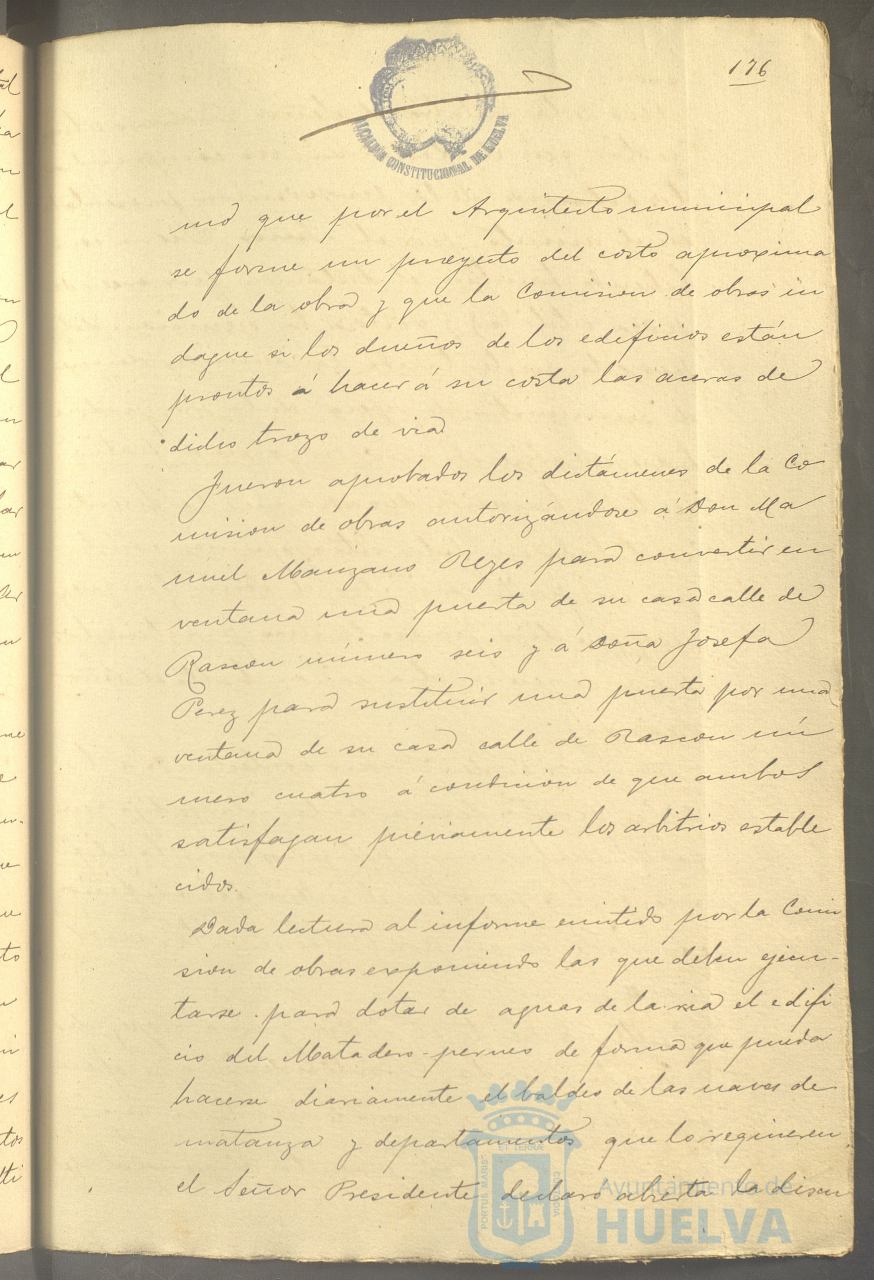 176
ALCALDÍA CONSTITUCIONAL DE HUELVA
mó que por el Arquitecto municipal
se forme un proyecto del costo aproxima
do de la obra y que la Comision de obras in
dague si los dueños de los edificios están
prontos á hacer á su costa las aceras de
dicho trozo de via
Fueron aprobados los dictámenes de la Co
mision de obras autorizándose á Don Ma
nuel Manzano Reyes para convertir en
ventana una puerta de su casa calle de
Rascon número seis y á Doña Josefa
Perez para sustituir una puerta por una
ventana de su casa calle de Rascon nú
mero cuatro á condicion de que ambos
satisfagan préviamente los arbitrios estable
cidos.
Dada lectura al informe emitido por la Comi
sion de obras exponiendo las que deben ejecu-
tarse para dotar de aguas de la ria el edifi
cio del Matadero de forma que pueda
hacerse diariamente el baldeo de las naves de
matanza y departamentos que lo requieren,
el Señor Presidente declaró abierta la discu
PORTUS MARIS ET TERRAE CUSTODIA
Ayuntamiento de
HUELVA